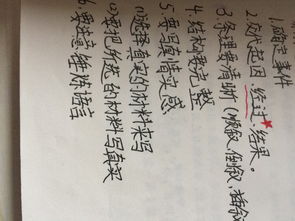 1.确定事件
2.交代起因、经过、结果。
3.条理要清晰（顺叙、倒叙、插叙
4.结构要完整
5.要写真情实感
(1)选择真实的材料来写
(2)要把所选的材料写真实
6.要注意锤炼语言